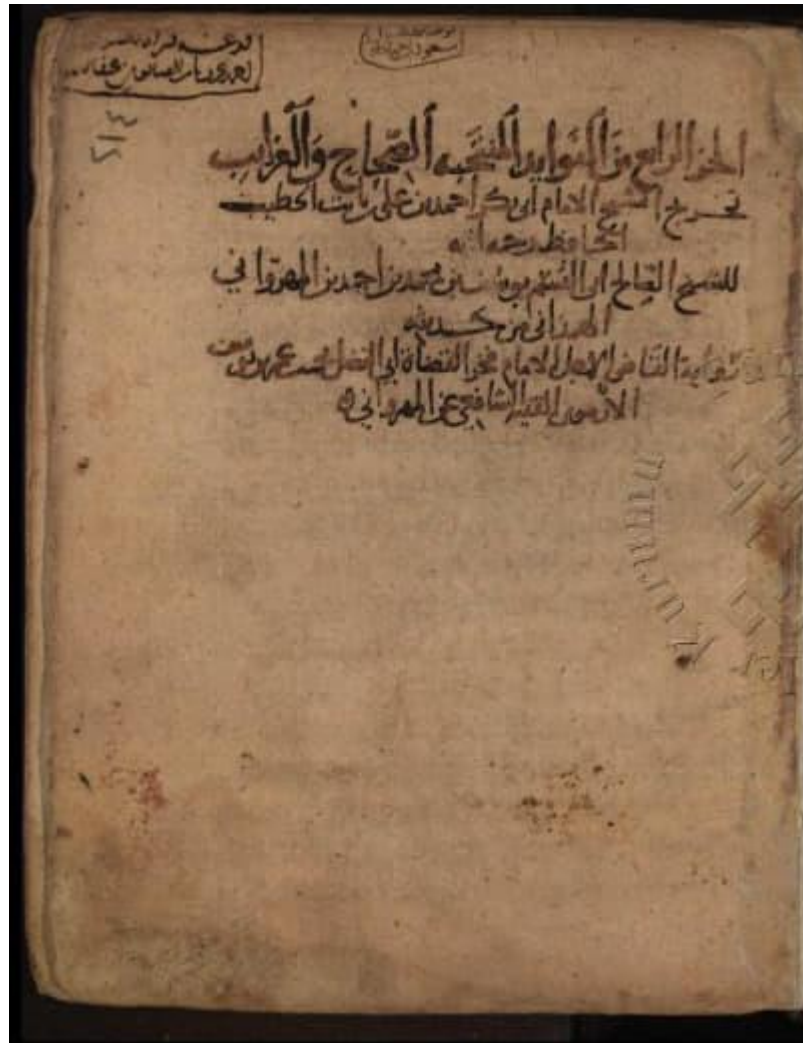 الجزء الرابع من الفوايد المنتخبه الصحاح والغرايب
تخريج الشيخ الامام ابى بكر احمد بن على بن ثابت الخطيب
الحافظ رحمه الله
للشيخ الصالح ابى القسم يوسف بن محمد بن احمد بن المهروانى
الهمدانى من حديثه
رواية القاضى الاجل الامام فخر القضاة ابى الفضل محمد بن عمر بن يوسف
الارموى الفقيه الشافعى عن المهروانى